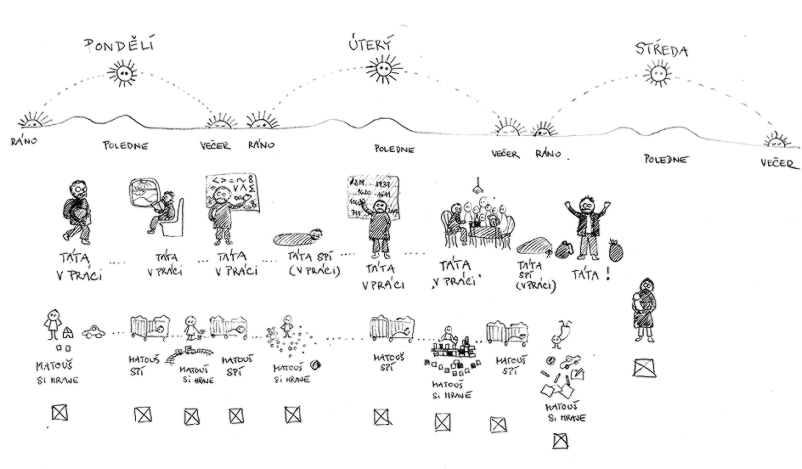 PONDĚLÍ
ÚTERÝ
STŘEDA
RÁNO
POLEDNE
VEČER
RÁNO
POLEDNE
VEČER
RÁNO
POLEDNE
VEČER
TÁTA
V PRÁCI
TÁTA
V PRÁCI
TÁTA
V PRÁCI
TÁTA SPÍ
(V PRÁCI)
TÁTA
V PRÁCI
TÁTA
„V PRÁCI“
TÁTA
SPÍ
(V PRÁCI)
TÁTA!
MATOUŠ
SI HRAJE
MATOUŠ
SPÍ
MATOUŠ
SI HRAJE
MATOUŠ
SPÍ
MATOUŠ
SI HRAJE
MATOUŠ
SPÍ
MATOUŠ
SI HRAJE
MATOUŠ
SPÍ
MATOUŠ
SI HRAJE